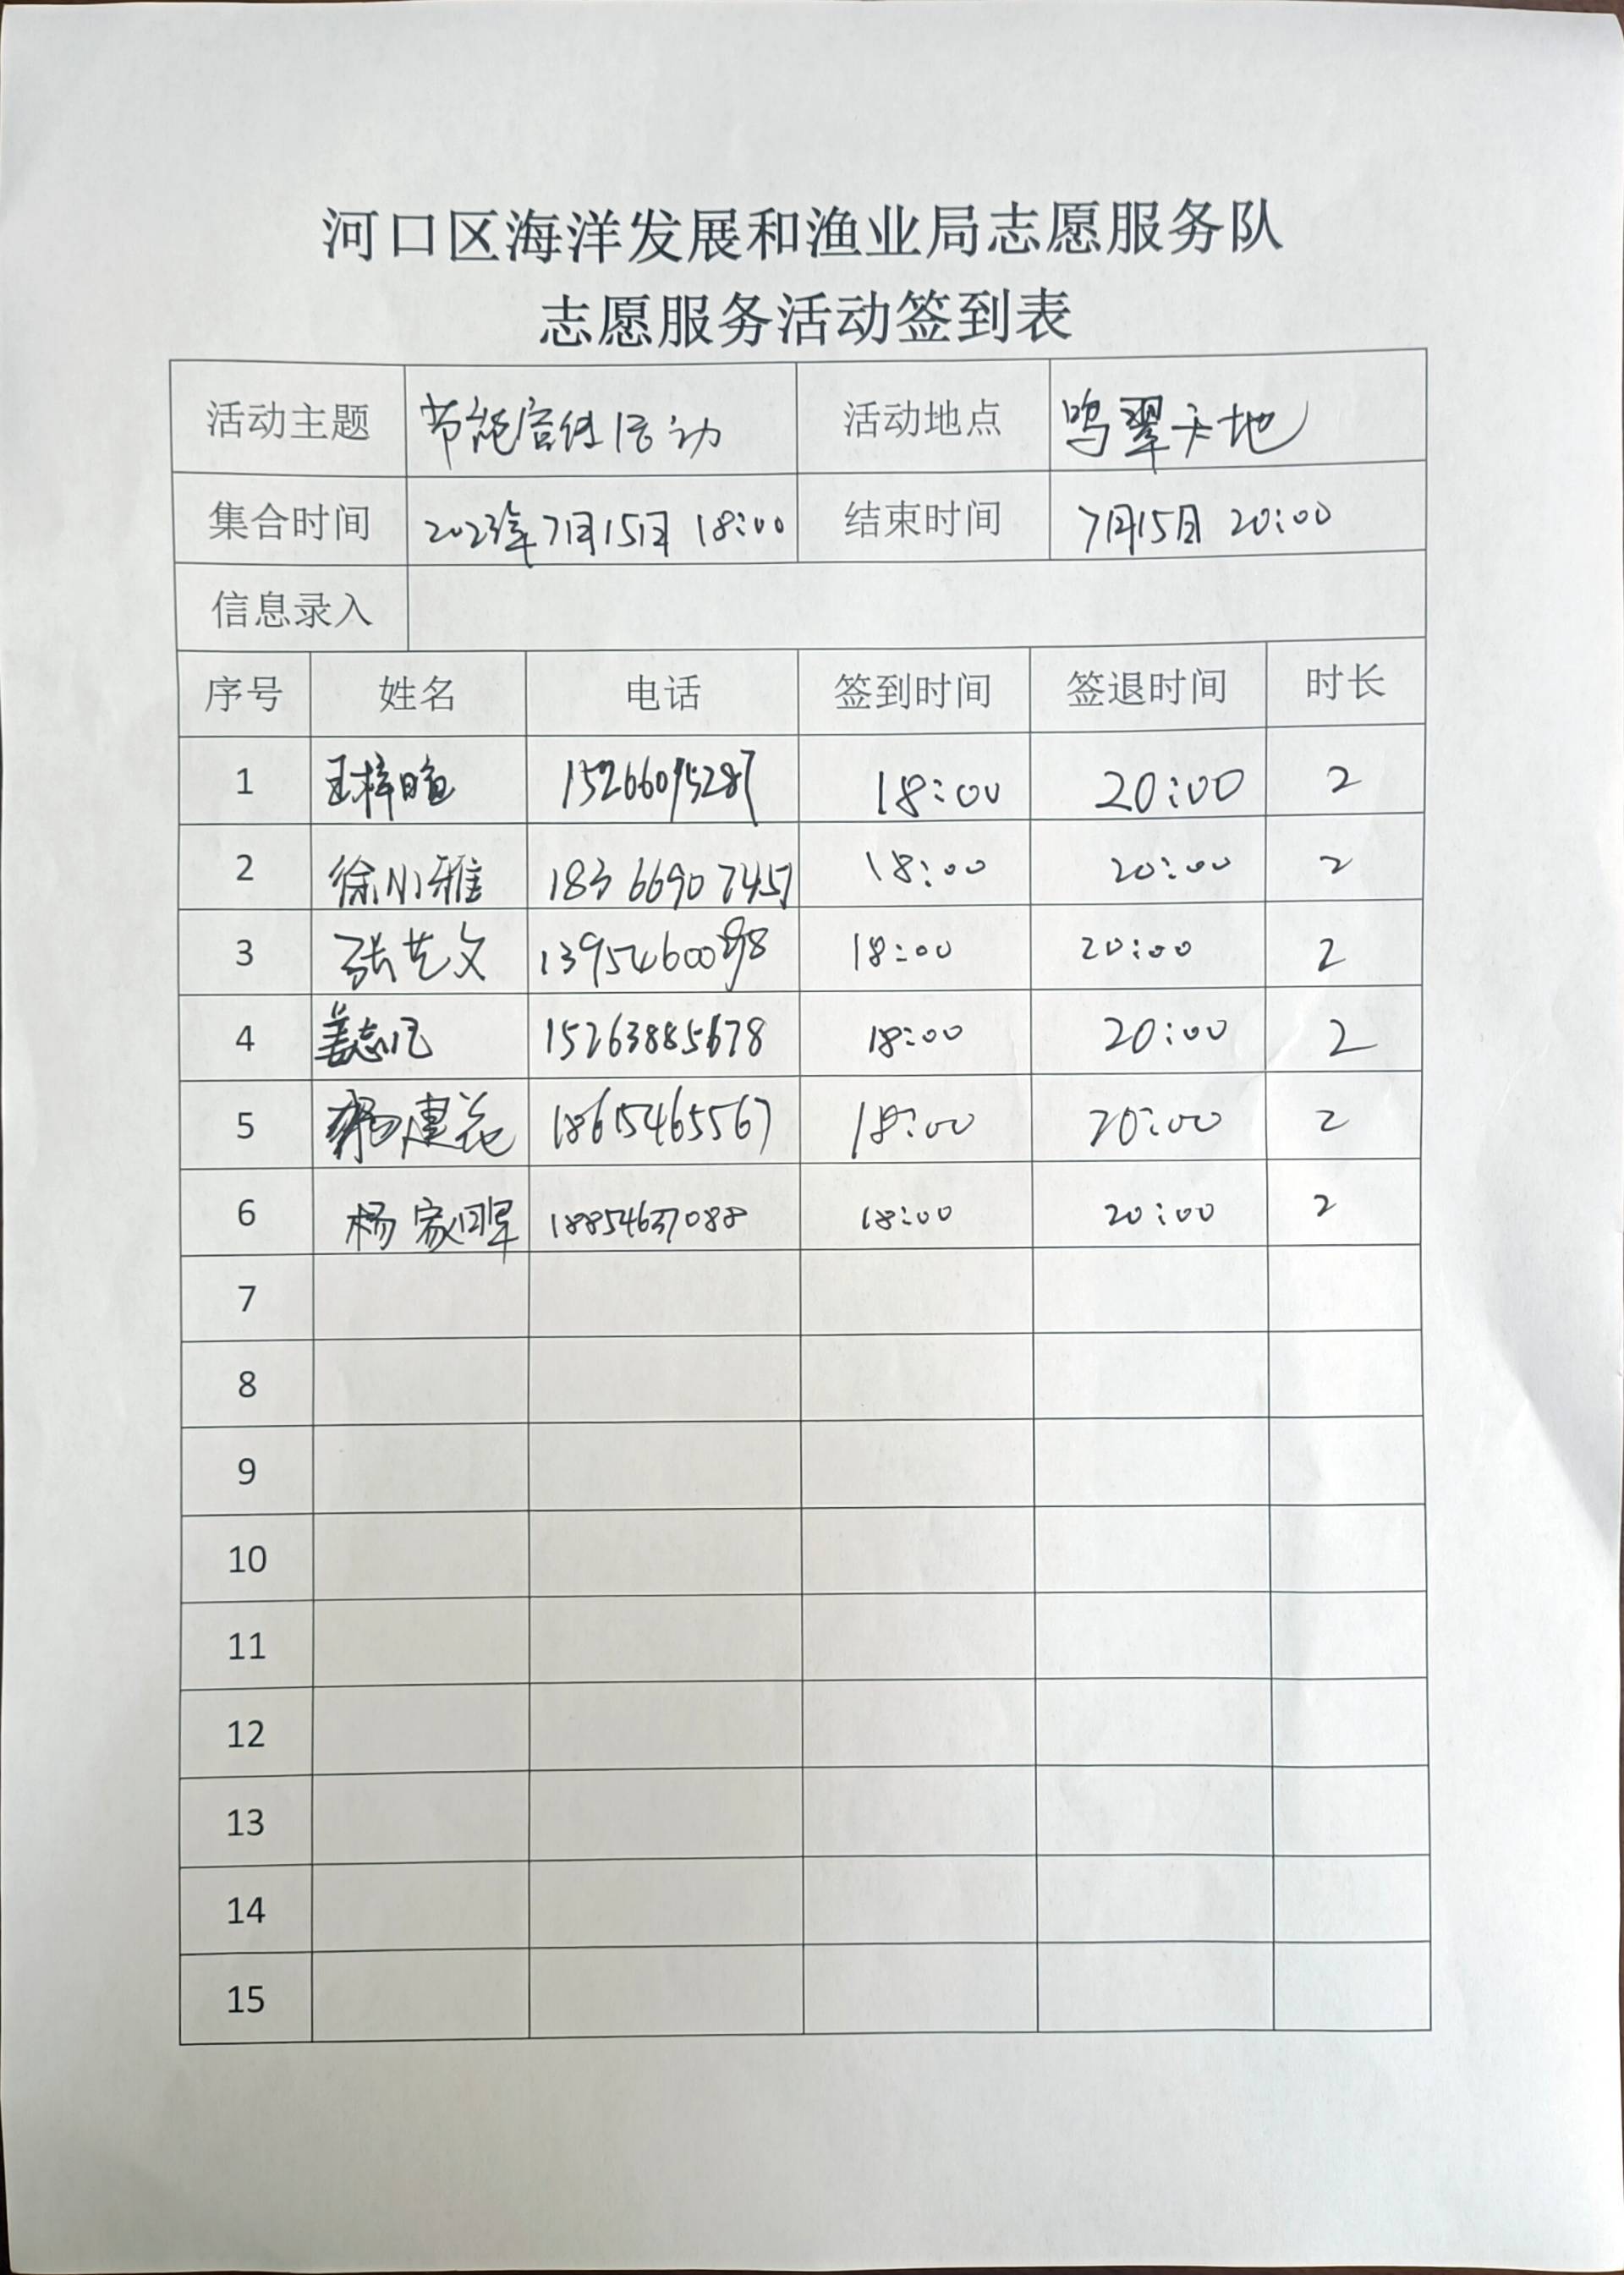 河口区海洋发展和渔业局志愿服务队
志愿服务活动签到表
活动主题 节能宣传活动 活动地点 鸣翠天地
集合时间 2023年7月15日 18:00 结束时间 7月15日 20:00
信息录入
序号 姓名 电话 签到时间 签退时间 时长
1 王梓暄 15266095287 18:00 20:00 2
2 徐小雅 18366907457 18:00 20:00 2
3 张艺文 18:00 20:00 2
4 姜志凡 15263885678 18:00 20:00 2
5 18615465567 18:00 20:00 2
6 杨家晖 18854637088 18:00 20:00 2
7
8
9
10
11
12
13
14
15